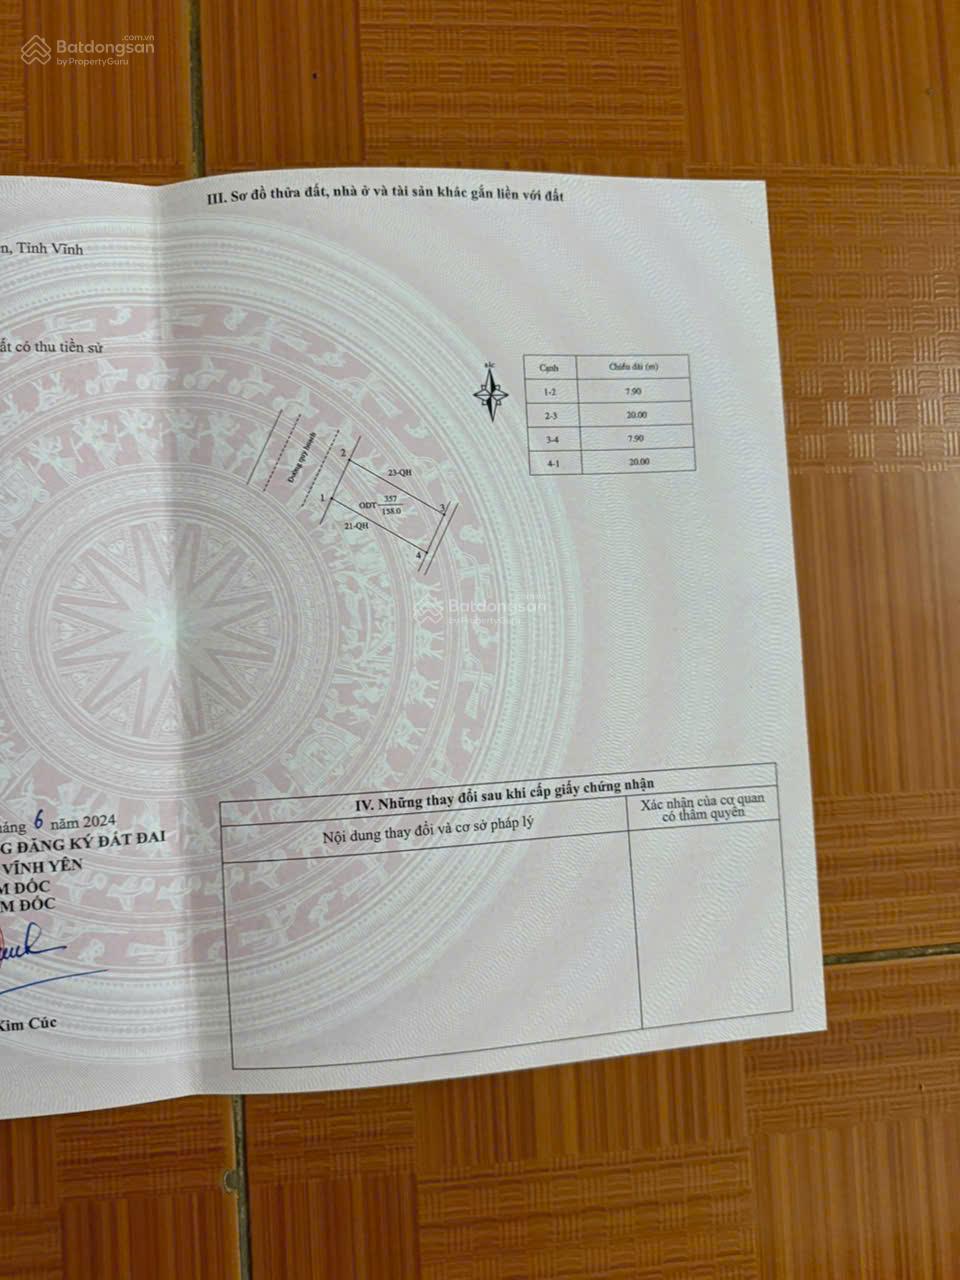 Batdongsan
.com.vn
by PropertyGuru
III. Sơ đồ thửa đất, nhà ở và tài sản khác gắn liền với đất
n, Tỉnh Vĩnh
ất có thu tiền sử
BẮC
Cạnh Chiều dài (m)
1-2 7.90
2-3 20.00
3-4 7.90
4-1 20.00
Đường quy hoạch
2
23-QH
1
ODT 357
158.0
3
21-QH
4
Batdongsan
.com.vn
by PropertyGuru
IV. Những thay đổi sau khi cấp giấy chứng nhận
Nội dung thay đổi và cơ sở pháp lý
Xác nhận của cơ quan
có thẩm quyền
háng 6 năm 2024
G ĐĂNG KÝ ĐẤT ĐAI
VĨNH YÊN
M ĐỐC
M ĐỐC
Kim Cúc